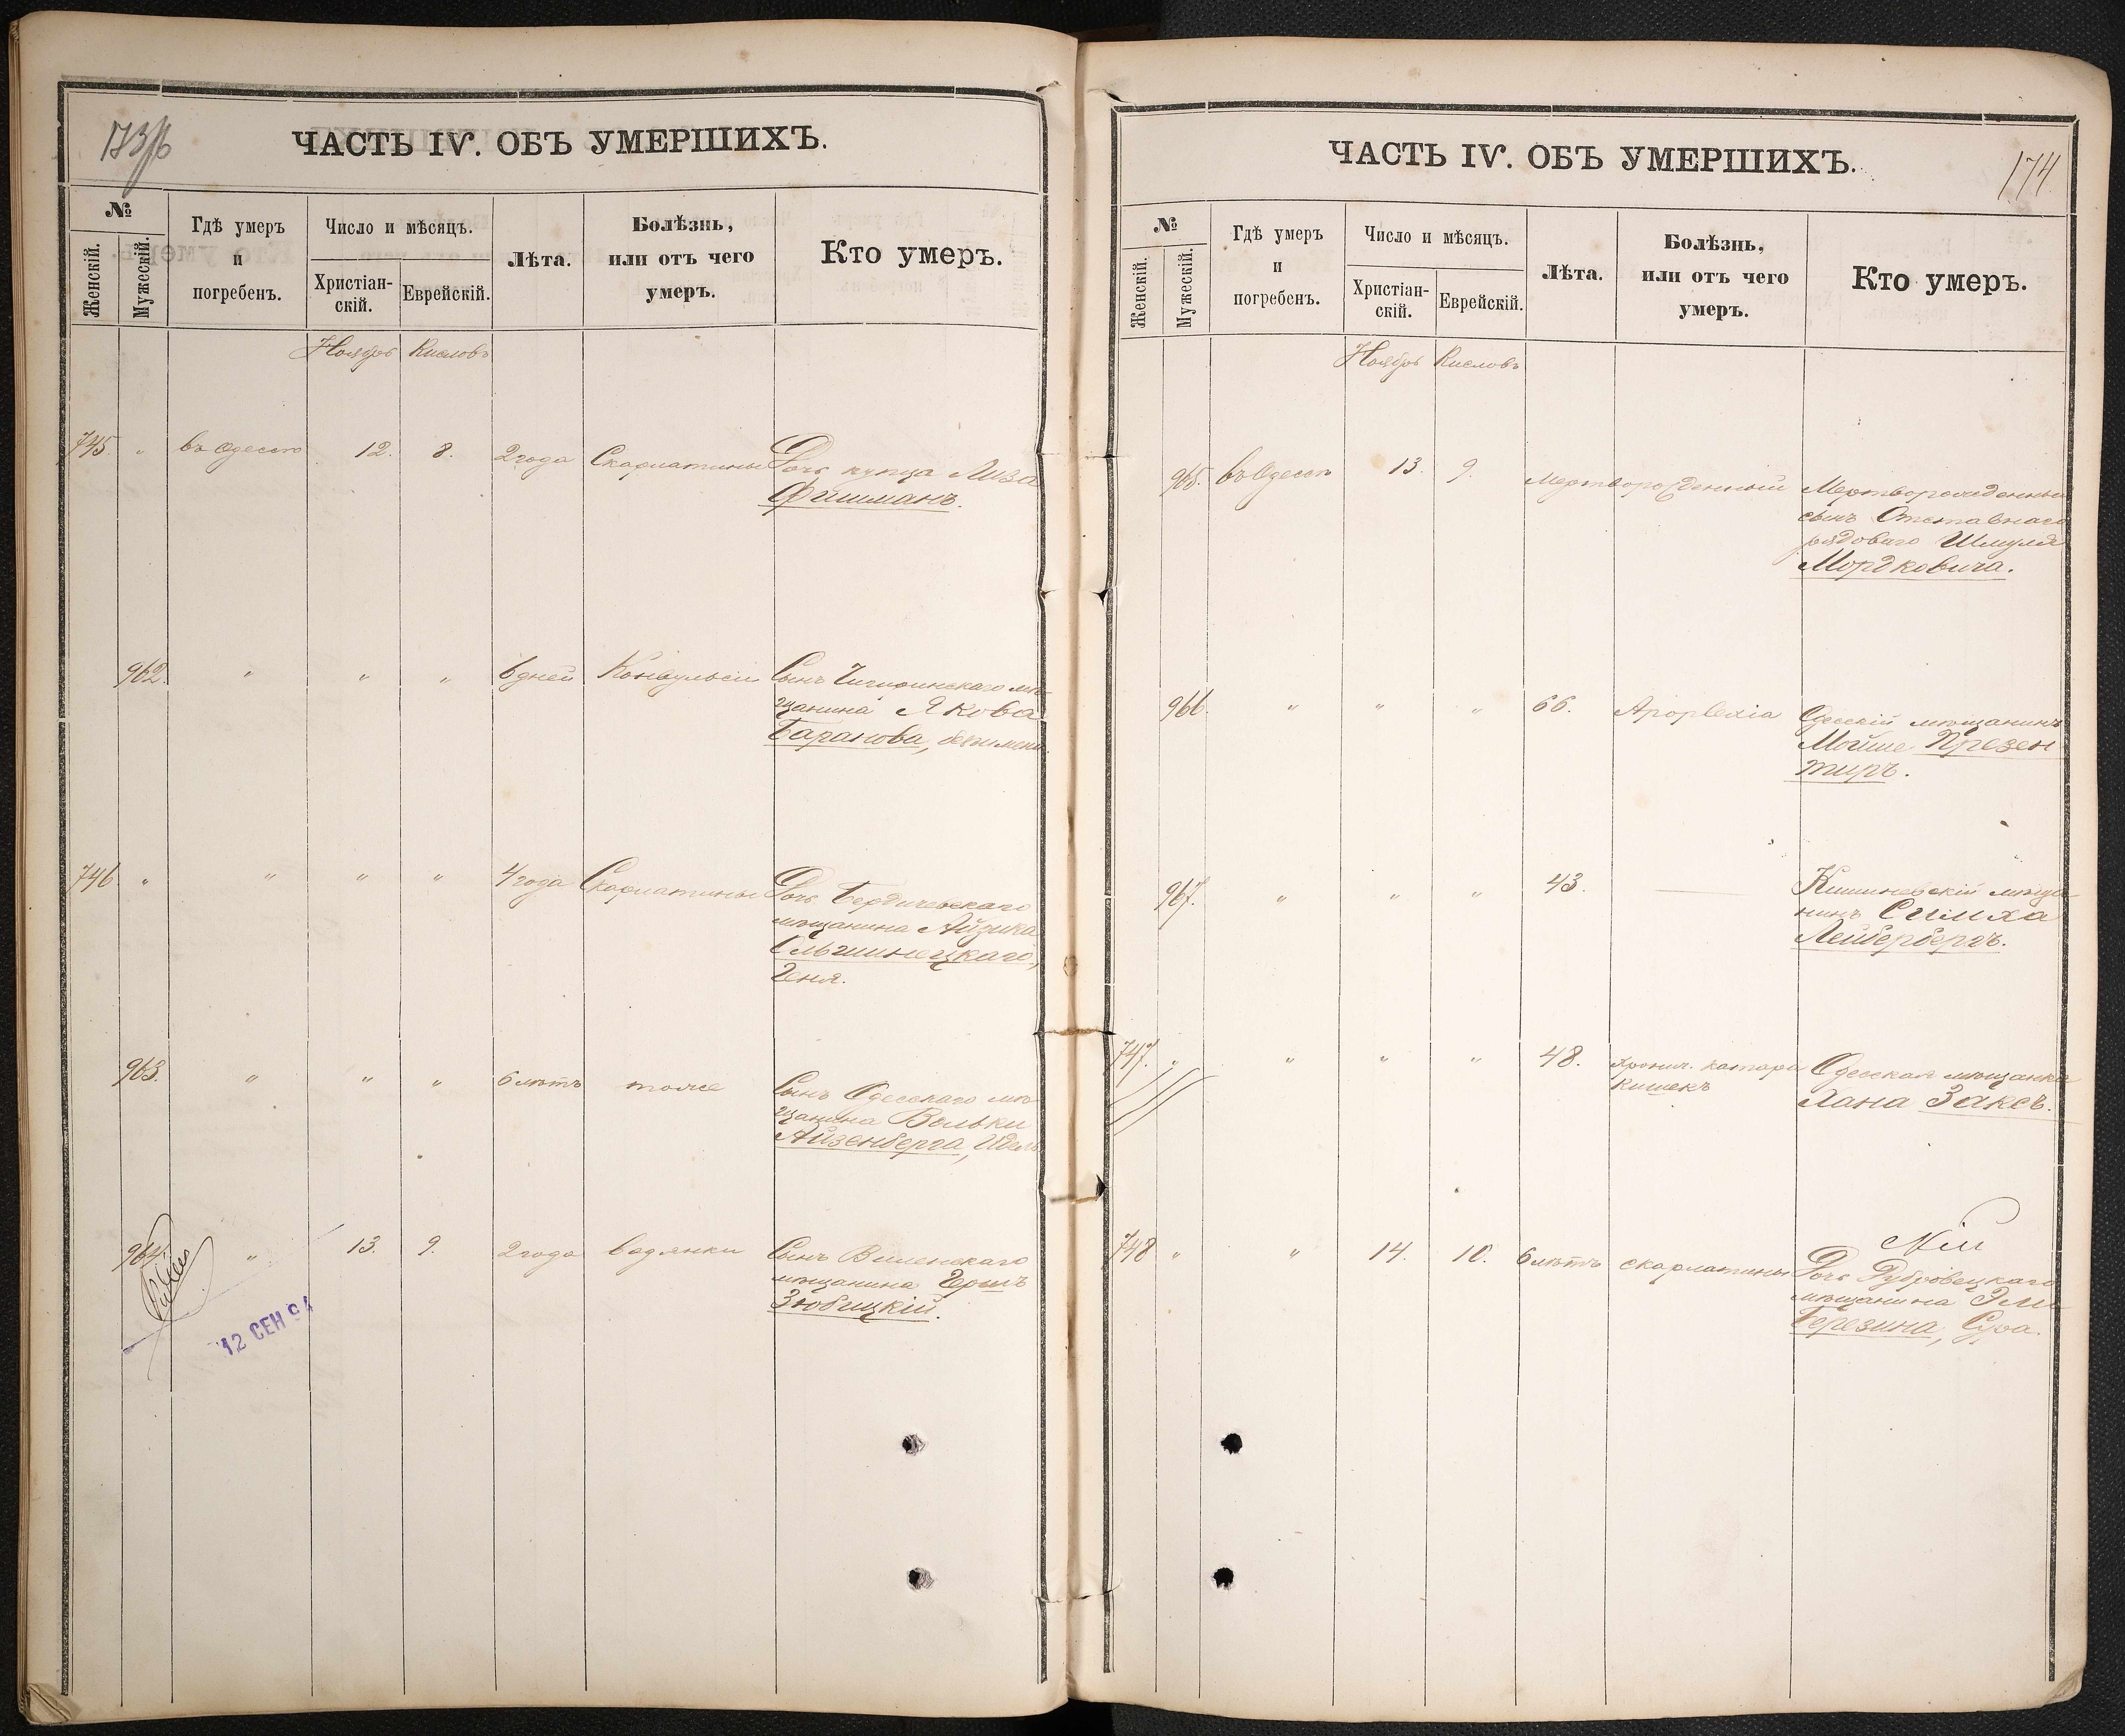 ЧАСТЬ IV. ОБЪ УМЕРШИХЪ.
№
Женскій.
Мужескій.
Гдѣ умеръ
и
погребенъ.
Число и мѣсяцъ.
Христіан-
скій.
Еврейскій.
Лѣта.
Болѣзнь,
или отъ чего
умеръ.
Кто умеръ.
Ноябрь Кислевъ
745. " въ Одессѣ 12. 8. 2 года Скарлатины Дочь купца Лиза
Фишманъ.
962. " " " 6 дней Конвульсіи Сынъ Чигиринскаго мѣ-
щанина Якова
Баранова, безъ имени.
746 " " " " 4 года Скарлатины Дочь Бердичевскаго
мѣщанина Айзика
Ольшинецкаго,
Геня.
963. " " " 6 лѣтъ тоже Сынъ Одесскаго мѣ-
щанина Вольки
Айзенберга, Идель
964. " 13. 9. 2 года водянки Сынъ Виленскаго
мѣщанина Гершъ
Зюбицкій.
12 СЕН 94
ЧАСТЬ IV. ОБЪ УМЕРШИХЪ.
174
№
Женскій.
Мужескій.
Гдѣ умеръ
и
погребенъ.
Число и мѣсяцъ.
Христіан-
скій.
Еврейскій.
Лѣта.
Болѣзнь,
или отъ чего
умеръ.
Кто умеръ.
Ноябрь Кислевъ
965. въ Одессѣ 13. 9. Мертворожденный Мертворожденный
сынъ Отставнаго
рядоваго Шмуля
Мордковича.
966. " " " 66. Apoplexia Одесскій мѣщанинъ
Мойше Презен
тиръ.
967. " " " 43. — Кишиневскій мѣща
нинъ Симха
Лейбербергъ.
747. " " " " 48. Хронич. катара Одесская мѣщанка
кишекъ Хана Заксъ.
748 " " 14. 10. 6 лѣтъ скарлатины Дочь Дубровецкаго
мѣщанина Эли
Березина, Сура.